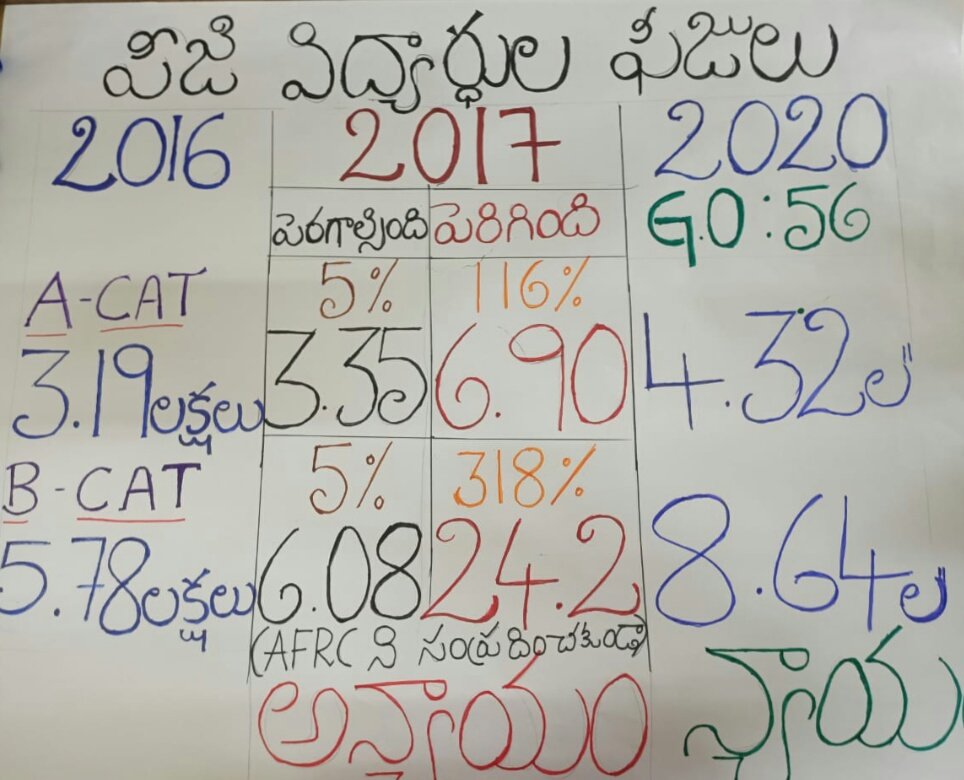 పీజి విద్యార్ధుల ఫీజులు
2016 2017 2020
పెరగాల్సింది పెరిగింది G.O : 56
A-CAT 5% 116%
3.19 లక్షలు 3.35 6.90 4.32ల"
B-CAT 5% 318%
5.78 లక్షలు 6.08 24.2 8.64ల"
(AFRC ని సంప్రదించకుండా)
అన్యాయం న్యాయం